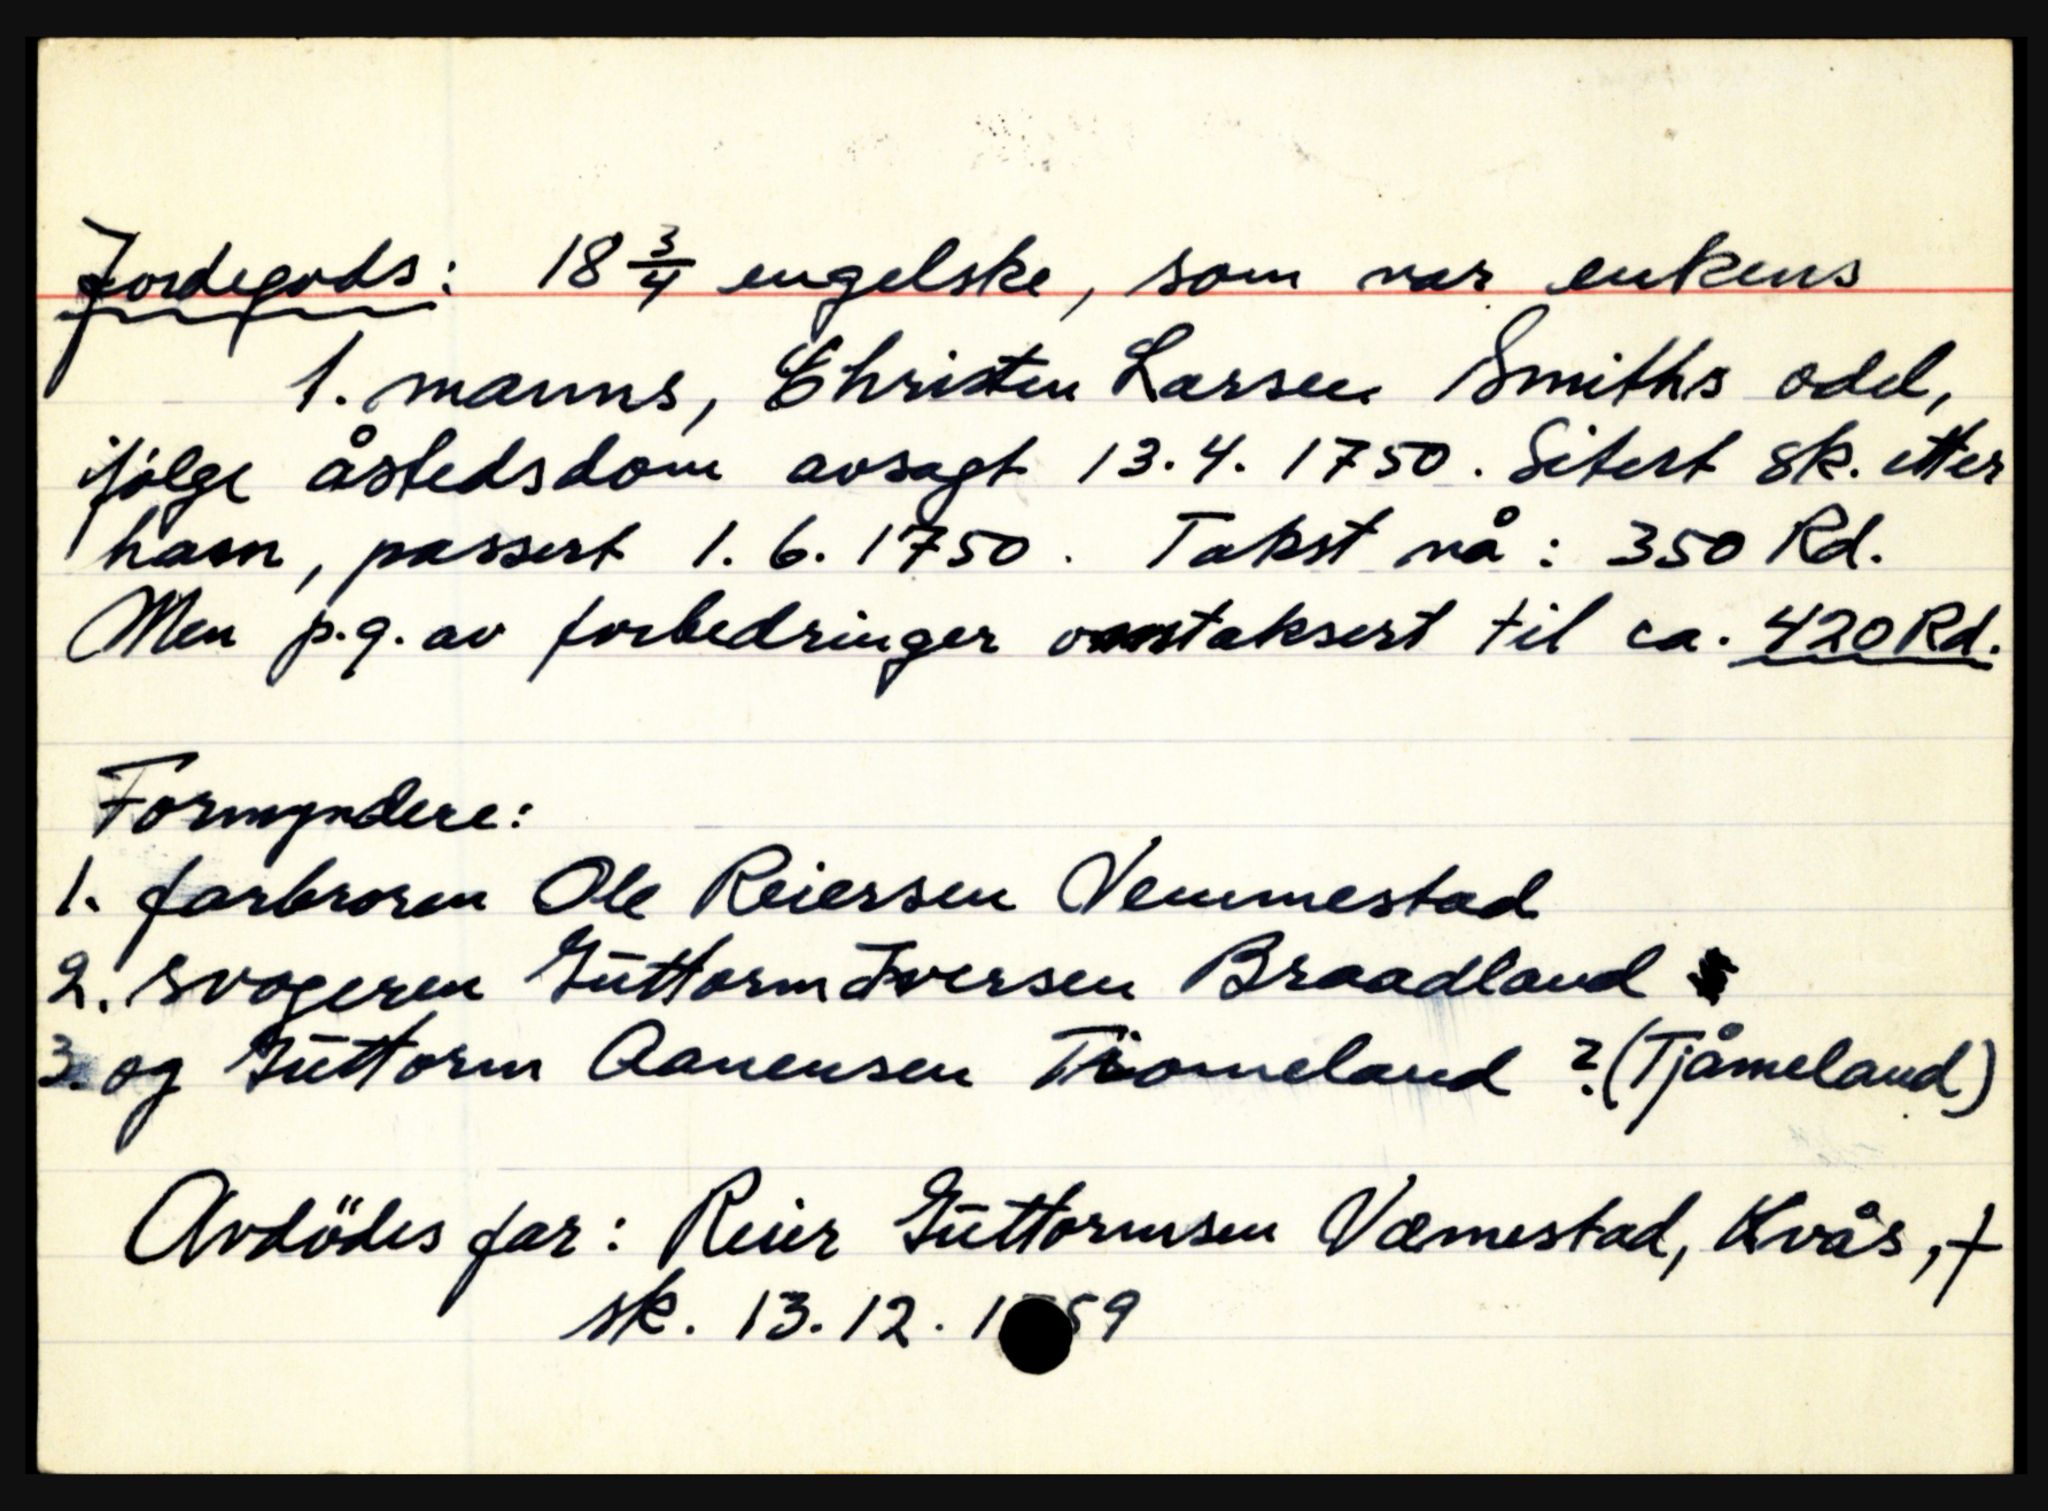 Jordegods: 18 3/4 engelske, som var enkens
1. manns, Christen Larsen Smiths odel,
ifölge åstedsdom avsagt 13.4.1750. Sitert sk. etter
ham, passert 1.6.1750. Takst nå: 350 Rd.
Men p.g.av forbedringer omtaksert til ca. 420 Rd.
Formyndere:
1. farbroren Ole Reiersen Vemmestad
2. svogeren Guttorm Iversen Braadland
3. og Guttorm Aanensen Tiomeland ? (Tjåmeland)
Avdödes far: Reier Guttormsen Væmestad, Kvås, †
sk. 13.12. 1759